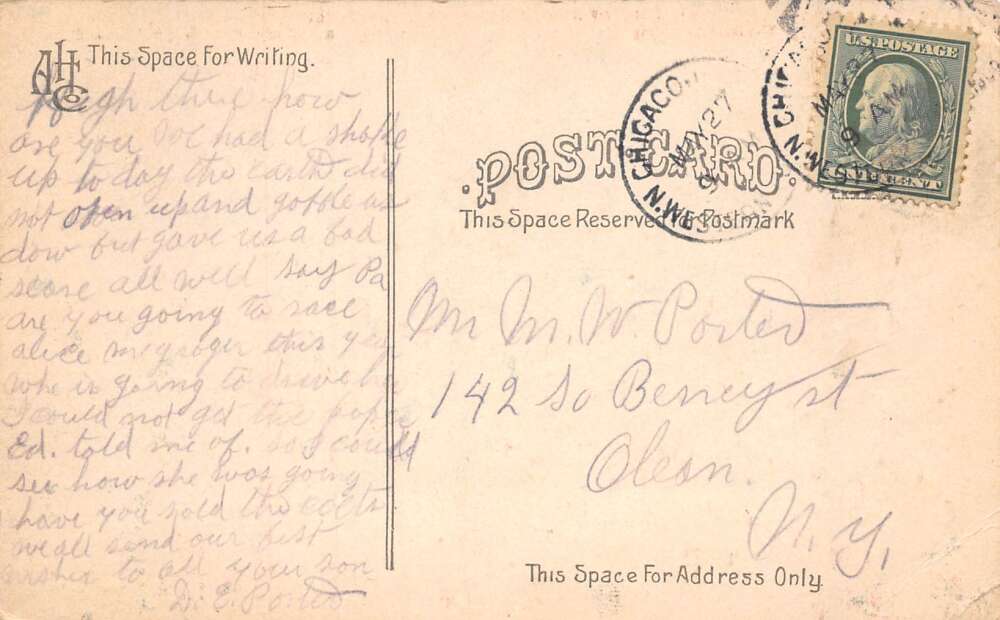 AHCo
This Space For Writing.
there how
are you We had a shake
up to day the earth did
not open up and gobble us
dow but gave us a bad
scare all well say Pa
are you going to race
alice this year
who is going to drive her
I could not get the paper
Ed. told me of. so I could
see how she was going
have you sold the colts
we all send our best
wishes to all your son
D. E. Porter
POST CARD.
This Space Reserved For Postmark
N. CHICAGO.
MAY 27
9
N. WES
CHICAGO
MAY 27
9 AM
N. WES
U.S. POSTAGE
ONE CENT
Mr M. W Porter
142 So Barrey st
Olean.
N. Y.
This Space For Address Only.